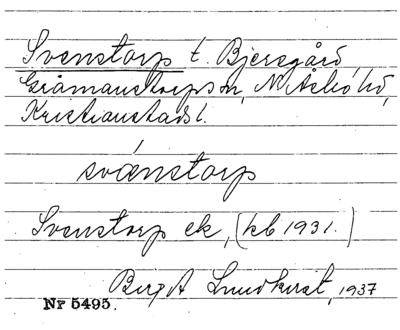 Svenstorp t. Bjersgård,
Gråmanstorps sn, N. Åsbo hd,
Kristianstads l.
svænstorp
Svenstorp ek, (kb 1931.)
Lundkvist, 1937
Nr 5495.